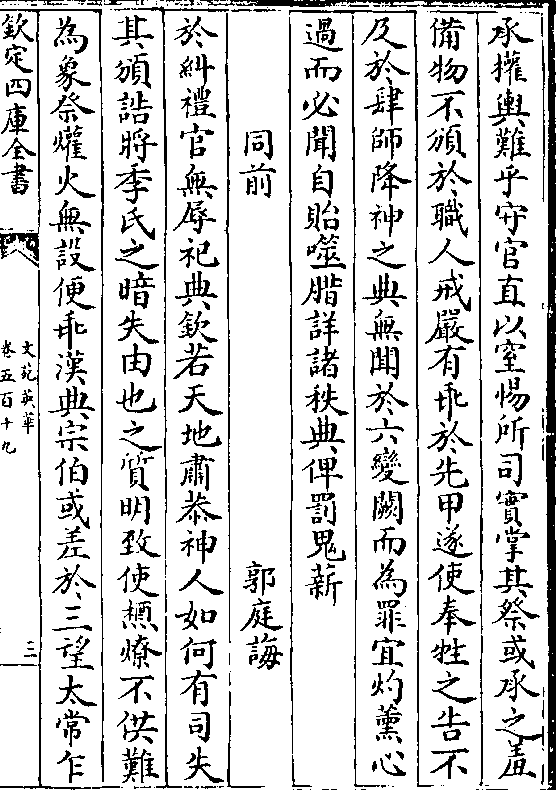 承權輿難乎守官直以窒惕所司實掌其祭或承之羞
備物不頒於職人戒嚴有乖於先甲遂使奉牲之告不
及於肆師降神之典無聞於六變闕而為罪宜灼薰心
過而必聞自貽噬腊詳諸秩典俾罰鬼薪
同前 郭庭誨
於糾禮官無辱祀典欽若天地肅恭神人如何有司失
其頒誥將季氏之暗失由也之質明致使槱燎不供難
為象祭爟火無設便乖漢典宗伯或差於三望太常乍
欽定四庫全書
文苑英華
卷五百十九
三